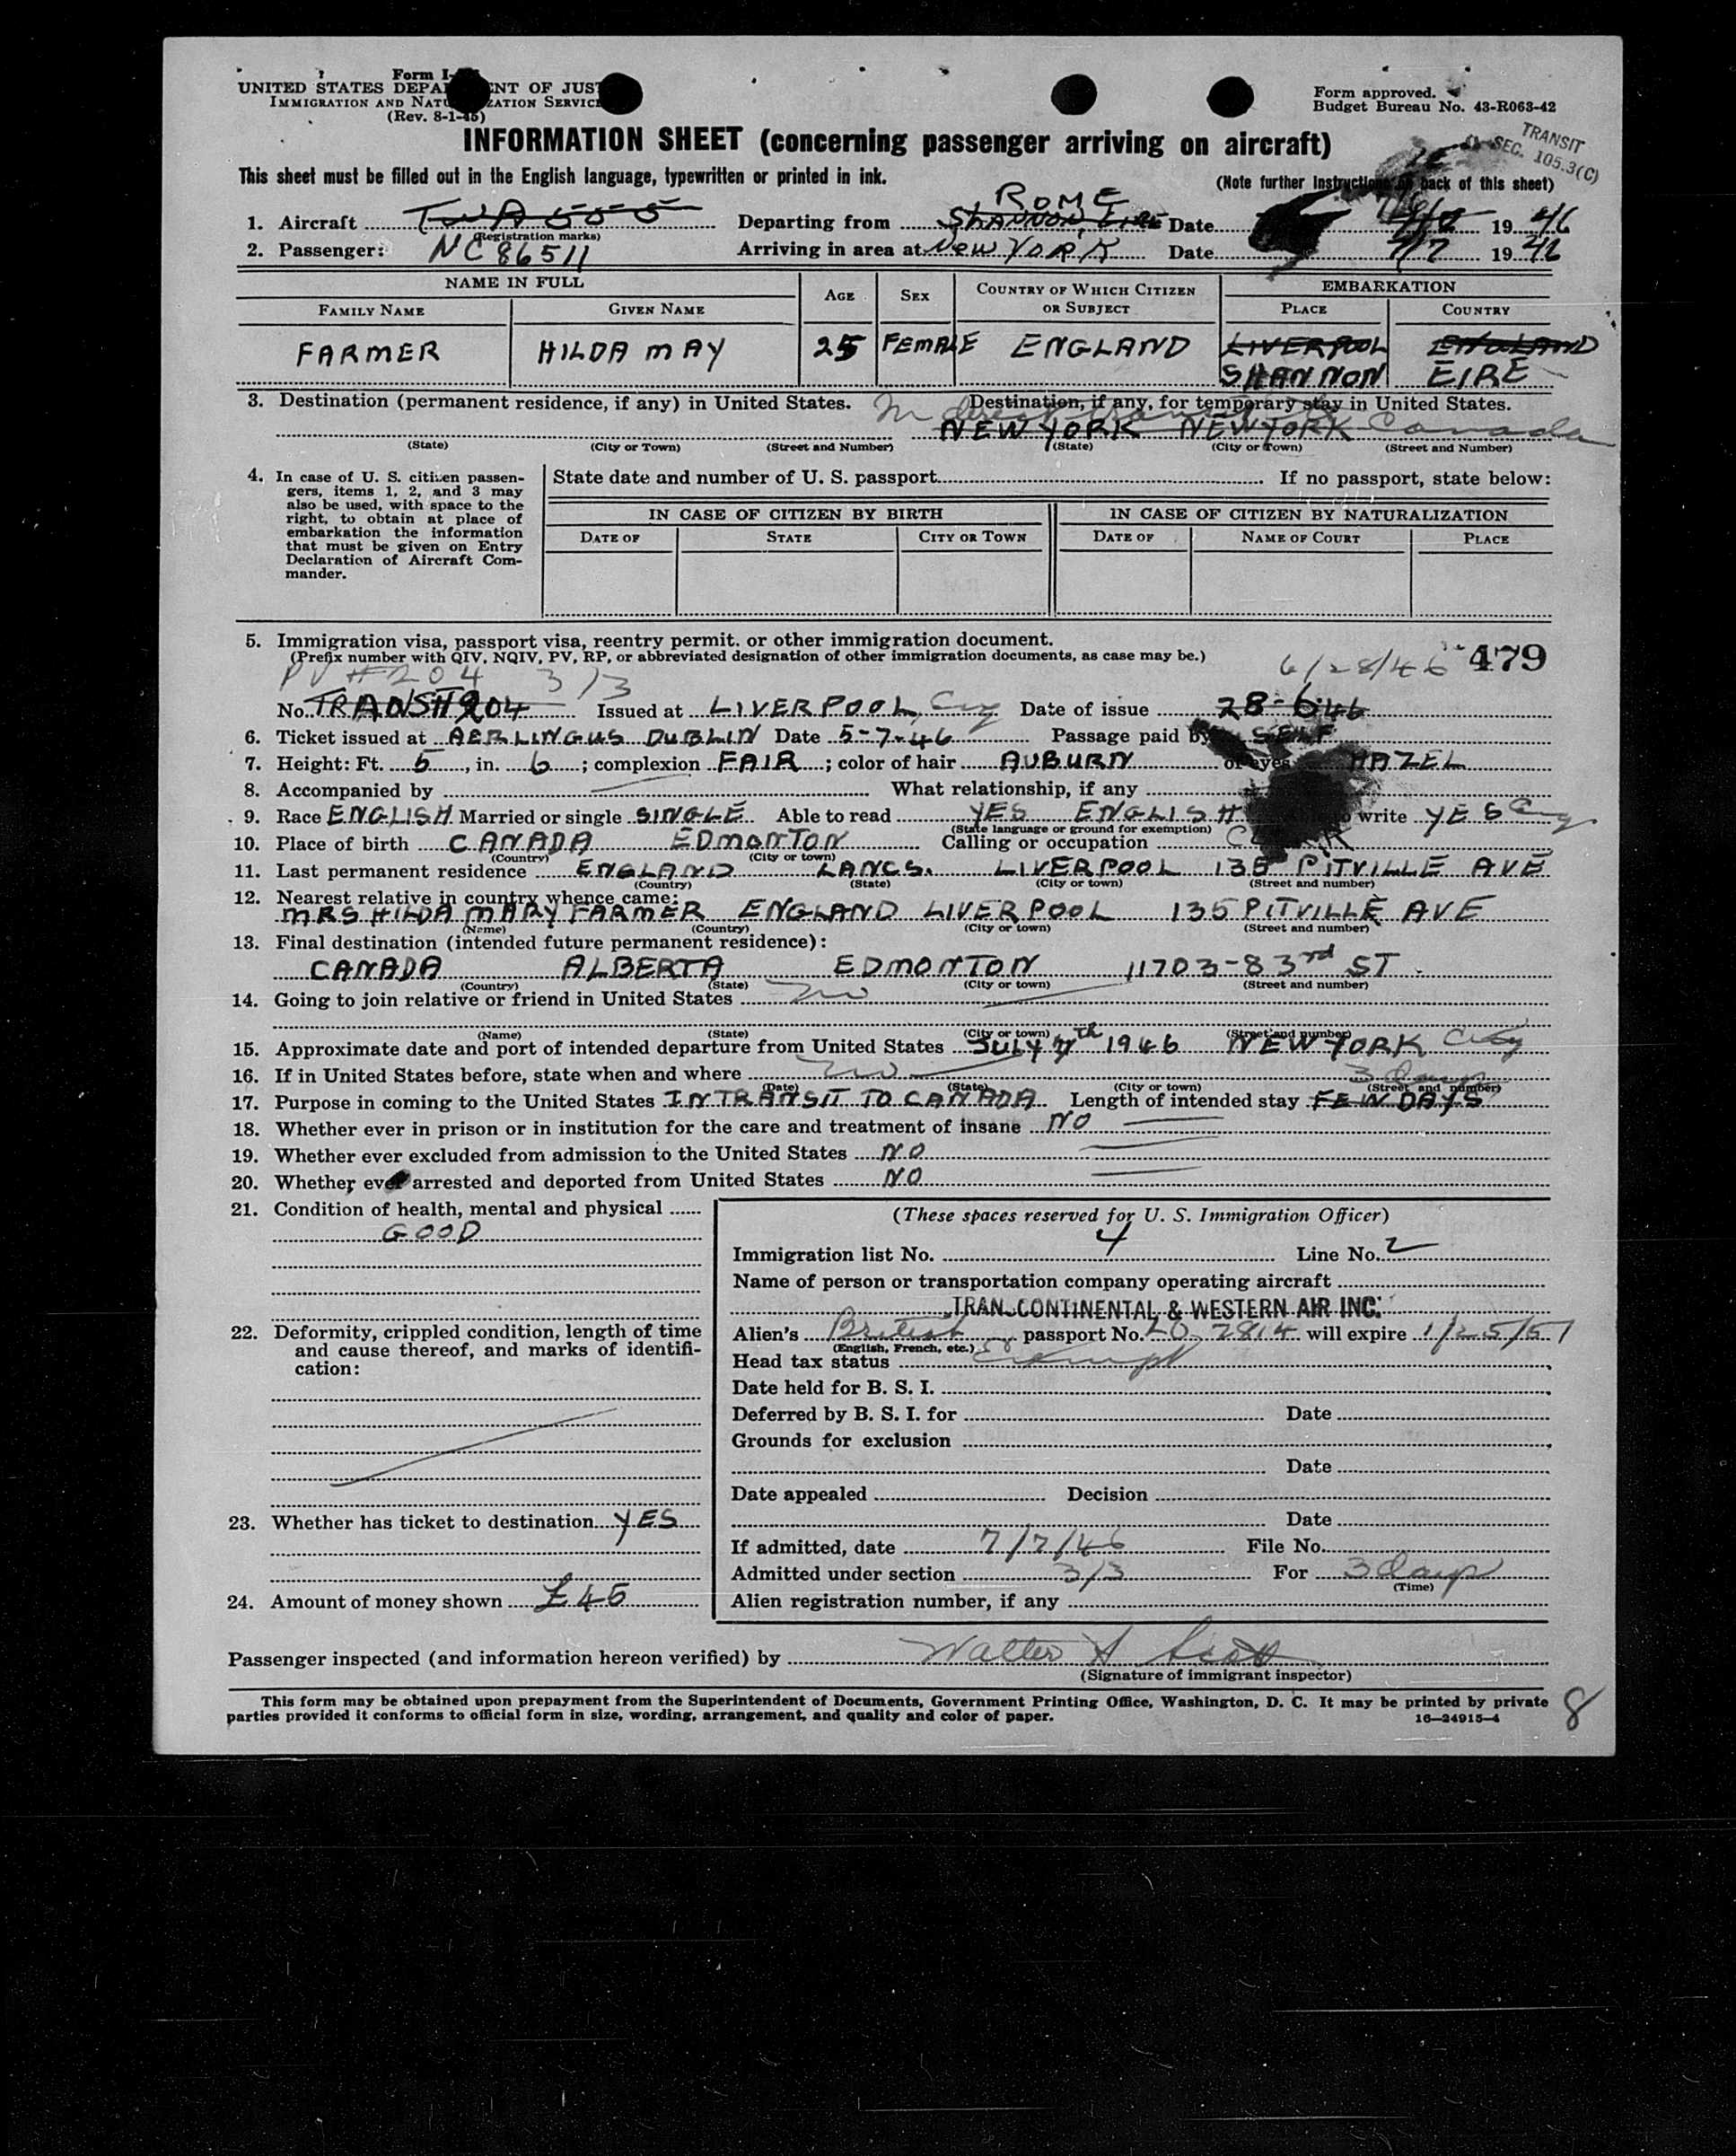 Form I-
UNITED STATES DEPA NT OF JUST
IMMIGRATION AND NATU ZATION SERVICE
(Rev. 8-1-45)
Form approved.
Budget Bureau No. 43-R063-42
TRANSIT
SEC. 105.3(C)
INFORMATION SHEET (concerning passenger arriving on aircraft)
This sheet must be filled out in the English language, typewritten or printed in ink.
(Note further Instructions on back of this sheet)
ROME
1. Aircraft TWA 555 Departing from SHANNON, EIRE Date 1946
(Registration marks)
2. Passenger: NC 86511 Arriving in area at NEW YORK Date 7/7 1946
NAME IN FULL AGE SEX COUNTRY OF WHICH CITIZEN OR SUBJECT EMBARKATION
FAMILY NAME GIVEN NAME PLACE COUNTRY
FARMER HILDA MAY 25 FEMALE ENGLAND LIVERPOOL ENGLAND
SHANNON EIRE
3. Destination (permanent residence, if any) in United States. Destination, if any, for temporary stay in United States.
NEW YORK NEW YORK Canada
(State) (City or Town) (Street and Number) (State) (City or Town) (Street and Number)
4. In case of U. S. citizen passengers, items 1, 2, and 3 may also be used, with space to the right, to obtain at place of embarkation the information that must be given on Entry Declaration of Aircraft Commander.
State date and number of U. S. passport If no passport, state below:
IN CASE OF CITIZEN BY BIRTH IN CASE OF CITIZEN BY NATURALIZATION
DATE OF STATE CITY OR TOWN DATE OF NAME OF COURT PLACE
5. Immigration visa, passport visa, reentry permit. or other immigration document.
(Prefix number with QIV, NQIV, PV, RP, or abbreviated designation of other immigration documents, as case may be.)
PV #204 3/3 6/28/46 479
No. TRANSIT 204 Issued at LIVERPOOL, Eng Date of issue 28-6-46
6. Ticket issued at AERLINGUS DUBLIN Date 5-7-46 Passage paid by SELF
7. Height: Ft. 5, in. 6; complexion FAIR; color of hair AUBURN of eyes HAZEL
8. Accompanied by What relationship, if any
9. Race ENGLISH Married or single SINGLE Able to read YES ENGLISH write YES Eng
(State language or ground for exemption)
10. Place of birth CANADA EDMONTON Calling or occupation
(Country) (City or town)
11. Last permanent residence ENGLAND LANCS. LIVERPOOL 135 PITVILLE AVE
(Country) (State) (City or town) (Street and number)
12. Nearest relative in country whence came:
MRS HILDA MARY FARMER ENGLAND LIVERPOOL 135 PITVILLE AVE
(Name) (Country) (City or town) (Street and number)
13. Final destination (intended future permanent residence):
CANADA ALBERTA EDMONTON 11703-83rd ST.
(Country) (State) (City or town) (Street and number)
14. Going to join relative or friend in United States no
(Name) (State) (City or town) (Street and number)
15. Approximate date and port of intended departure from United States JULY 7th 1946 NEW YORK City
16. If in United States before, state when and where no 3 days
(Date) (State) (City or town) (Street and number)
17. Purpose in coming to the United States IN TRANSIT TO CANADA Length of intended stay FEW DAYS
18. Whether ever in prison or in institution for the care and treatment of insane NO
19. Whether ever excluded from admission to the United States NO
20. Whether ever arrested and deported from United States NO
21. Condition of health, mental and physical
GOOD
(These spaces reserved for U. S. Immigration Officer)
Immigration list No. 4 Line No. 2
Name of person or transportation company operating aircraft
TRANSCONTINENTAL & WESTERN AIR INC.
22. Deformity, crippled condition, length of time and cause thereof, and marks of identification:
Alien's British passport No. LO 2814 will expire 1/25/51
(English, French, etc.)
Head tax status Exempt
Date held for B. S. I.
Deferred by B. S. I. for Date
Grounds for exclusion
Date
Date appealed Decision
23. Whether has ticket to destination YES
Date
If admitted, date 7/7/46 File No.
Admitted under section 3/3 For 3 days
(Time)
24. Amount of money shown £45
Alien registration number, if any
Passenger inspected (and information hereon verified) by Walter A Scott
(Signature of immigrant inspector)
This form may be obtained upon prepayment from the Superintendent of Documents, Government Printing Office, Washington, D. C. It may be printed by private
parties provided it conforms to official form in size, wording, arrangement, and quality and color of paper.
16—24915-4
8